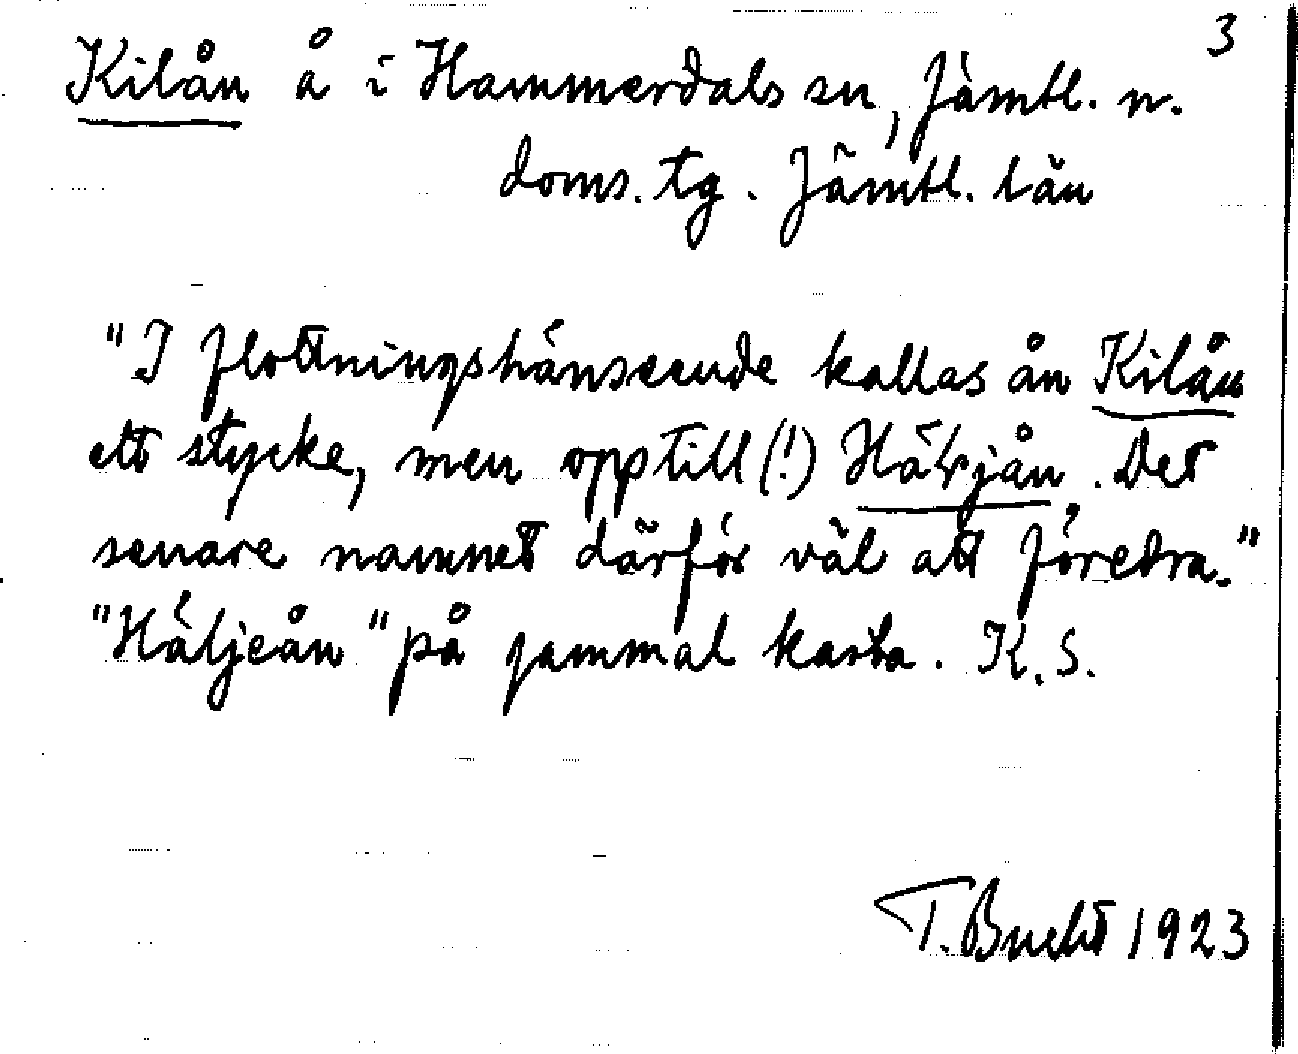 3
Kilån å i Hammerdals sn, Jämtl. n.
doms. tg. Jämtl. län
"I flottningshänseende kallas ån Kilån
ett stycke, men opptill (!) Hävjån. Det
senare namnet därför väl att föredra."
"Häljeån" på gammal karta. K. S.
T. Bucht 1923